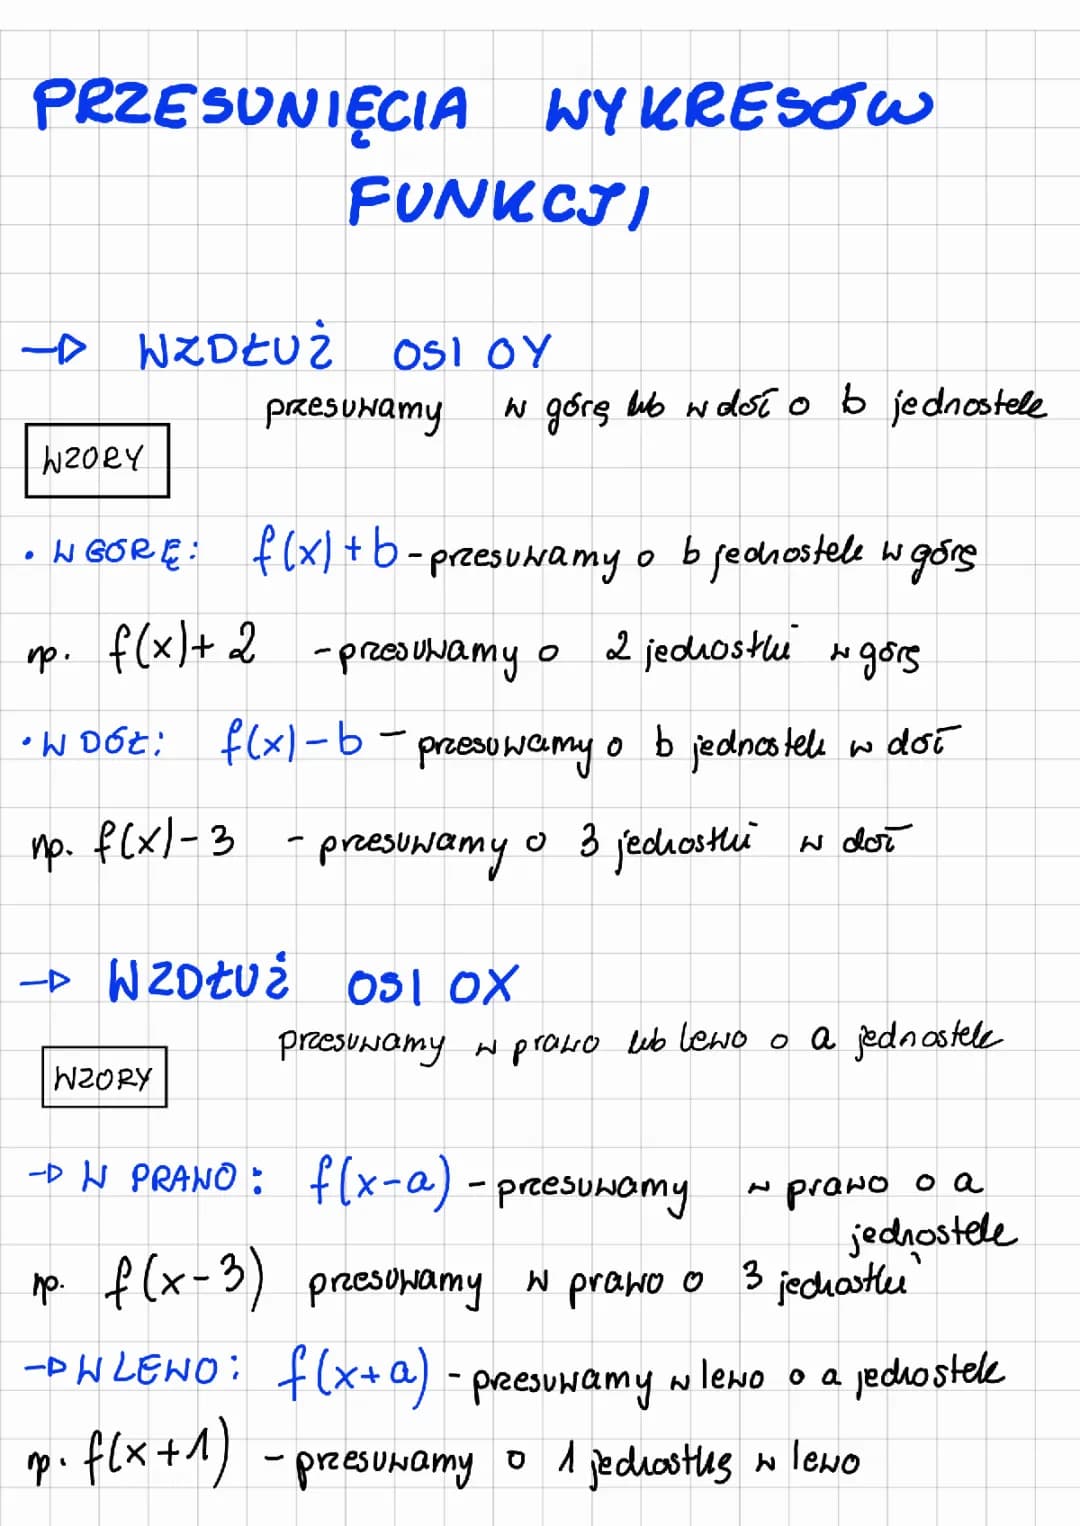 PRZESUNIĘCIA WYKRESÓW
FUNKCJI
→ WZDŁUŻ OSI OY
przesuwamy w górę lub w dół o b jednostek
WZORY
• W GÓRĘ: f(x)+b - przesuwamy o b jednostek w górę
np. f(x)+2 - przesuwamy o 2 jednostki w górę
• W DÓŁ: f(x)-b - przesuwamy o b jednostek w dół
np. f(x)-3 - przesuwamy o 3 jednostki w dół
→ WZDŁUŻ OSI OX
przesuwamy w prawo lub lewo o a jednostek
WZORY
→ W PRAWO: f(x-a) - przesuwamy w prawo o a
jednostek
np. f(x-3) przesuwamy w prawo o 3 jednostki
→ W LEWO: f(x+a) - przesuwamy w lewo o a jednostek
np. f(x+1) - przesuwamy o 1 jednostkę w lewo